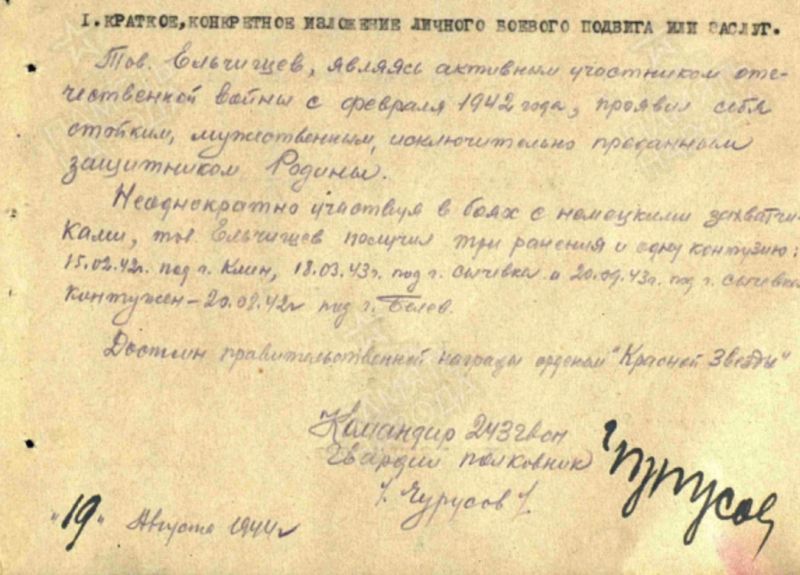 I. КРАТКОЕ, КОНКРЕТНОЕ ИЗЛОЖЕНИЕ ЛИЧНОГО БОЕВОГО ПОДВИГА ИЛИ ЗАСЛУГ.
Тов. Ельчищев, являясь активным участником оте-
чественной войны с февраля 1942 года, проявил себя
стойким, мужественным, исключительно преданным
защитником Родины.
Неоднократно участвуя в боях с немецкими захватчи-
ками, тов. Ельчищев получил три ранения и одну контузию:
15.02.42г. под г. Клин, 18.03.43г. под г. Сычевка и 20.09.43г. под г. Сычевка
Контужен – 20.08.42г под г. Белев.
Достоин правительственной награды орденом "Красной Звезды"
Командир 243гвсп
Гвардии полковник
/. Чурусов /.
"19" Августа 1944г